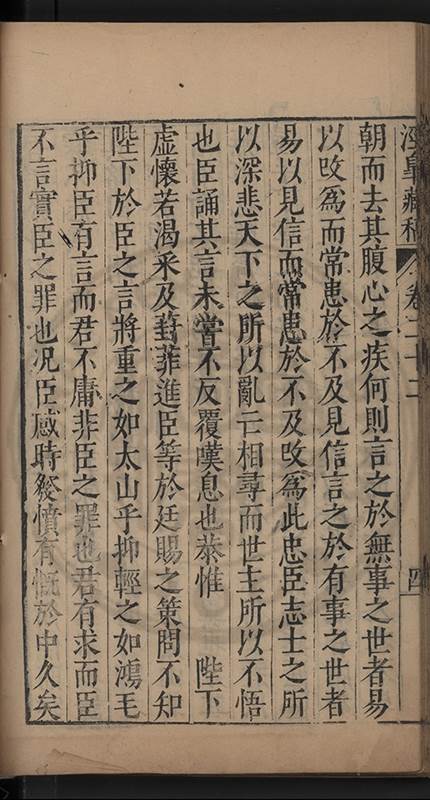 涇臯藏稿 卷二十二 四
朝而去其腹心之疾何則言之於無事之世者易
以攺爲而常患於不及見信言之於有事之世者
易以見信而常患於不及攺爲此忠臣志士之所
以深悲天下之所以亂亡相尋而世主所以不悟
也臣誦其言未嘗不反覆嘆息也恭惟 陛下
虚懷若渴采及葑菲進臣等於廷賜之策問不知
陛下於臣之言將重之如太山乎抑輕之如鴻毛
乎抑臣有言而君不庸非臣之罪也君有求而臣
不言實臣之罪也况臣感時發憤有慨於中久矣